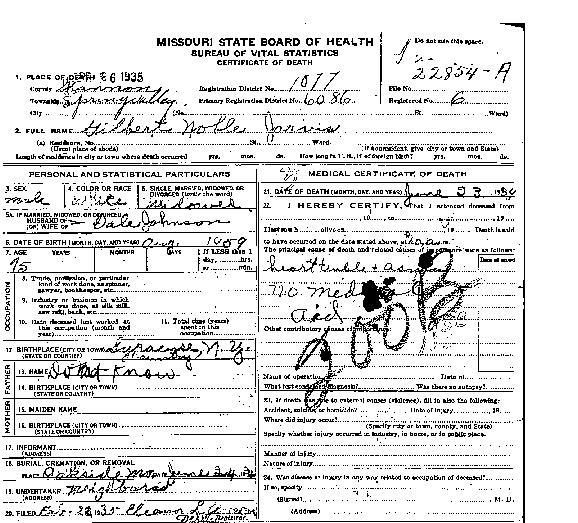 MISSOURI STATE BOARD OF HEALTH
BUREAU OF VITAL STATISTICS
CERTIFICATE OF DEATH
Do not use this space.
22854-A
1. PLACE OF DEATH 26 1935
County Shannon Registration District No. 1077 File No.
Township Spring Valley Primary Registration District No. 6086 Registered No. 6
City (No. St. Ward)
2. FULL NAME Gilbert Noble Jarvis
(a) Residence, No. St. Ward.
(Usual place of abode) (If nonresident, give city or town and State)
Length of residence in city or town where death occurred yrs. mos. ds. How long in U.S., if of foreign birth? yrs. mos. ds.
PERSONAL AND STATISTICAL PARTICULARS
3. SEX 4. COLOR OR RACE 5. SINGLE, MARRIED, WIDOWED, OR DIVORCED (write the word)
male White Widowed
5A. IF MARRIED, WIDOWED, OR DIVORCED
HUSBAND OF
(OR) WIFE OF Johnson
6. DATE OF BIRTH (MONTH, DAY, AND YEAR) Aug 1859
7. AGE YEARS MONTHS DAYS If LESS than 1 day, hrs. or min.
75
OCCUPATION
8. Trade, profession, or particular kind of work done, as spinner, sawyer, bookkeeper, etc.
9. Industry or business in which work was done, as silk mill, saw mill, bank, etc.
10. Date deceased last worked at this occupation (month and year) 11. Total time (years) spent in this occupation
12. BIRTHPLACE (CITY OR TOWN) Syracuse, N. Y.
(STATE OR COUNTRY)
FATHER
13. NAME Do Not Know
14. BIRTHPLACE (CITY OR TOWN)
(STATE OR COUNTRY)
MOTHER
15. MAIDEN NAME
16. BIRTHPLACE (CITY OR TOWN)
(STATE OR COUNTRY)
17. INFORMANT
(ADDRESS)
18. BURIAL, CREMATION, OR REMOVAL
Place Date
19. UNDERTAKER
(ADDRESS)
20. FILED Eleanor
Registrar
MEDICAL CERTIFICATE OF DEATH
21. DATE OF DEATH (MONTH, DAY, AND YEAR) June 23, 1934
22. I HEREBY CERTIFY, That I attended deceased from
to 19
I last saw h alive on 19 Death is said
to have occurred on the date stated above, at m.
The principal cause of death and related causes of importance were as follows:
Date of onset
heart trouble +
no med
aid
Other contributory causes
2008
Name of operation Date of
What test confirmed diagnosis? Was there an autopsy?
23. If death was due to external causes (violence), fill in also the following:
Accident, suicide, or homicide? Date of injury 19
Where did injury occur?
(Specify city or town, county, and State)
Specify whether injury occurred in industry, in home, or in public place.
Manner of injury
Nature of injury
24. Was disease or injury in any way related to occupation of deceased?
If so, specify
(Signed) M. D.
(Address)